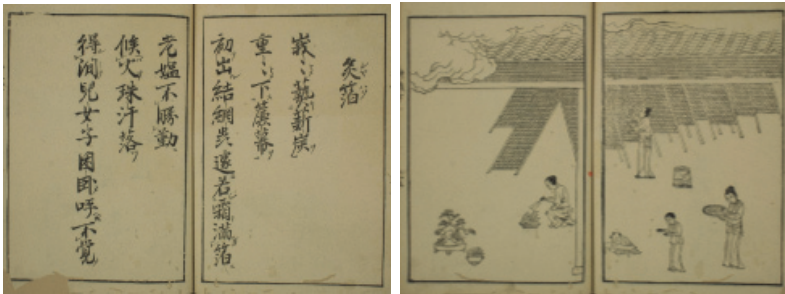 炙箔
峩〻爇薪炭
重〻下簾幕
初出結網虫遽若霜滿箔
老媼不勝勤
候火珠汗落
得閒兒女子困臥呼不覺